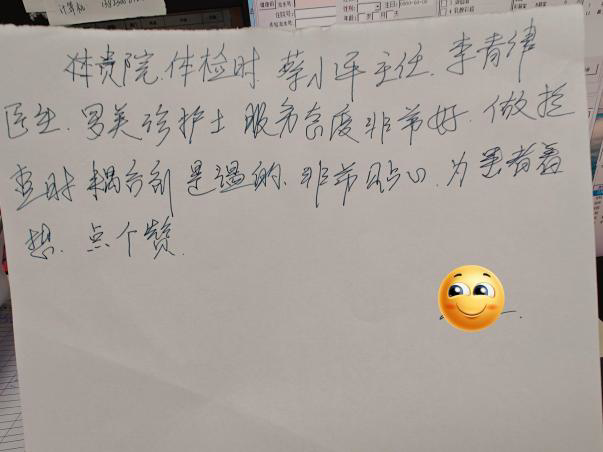 计算机
在贵院体检时，蔡小军主任、李青律
医生、罗美珍护士服务态度非常好，做检
查时耦合剂是温的、非常贴心，为患者着
想，点个赞．